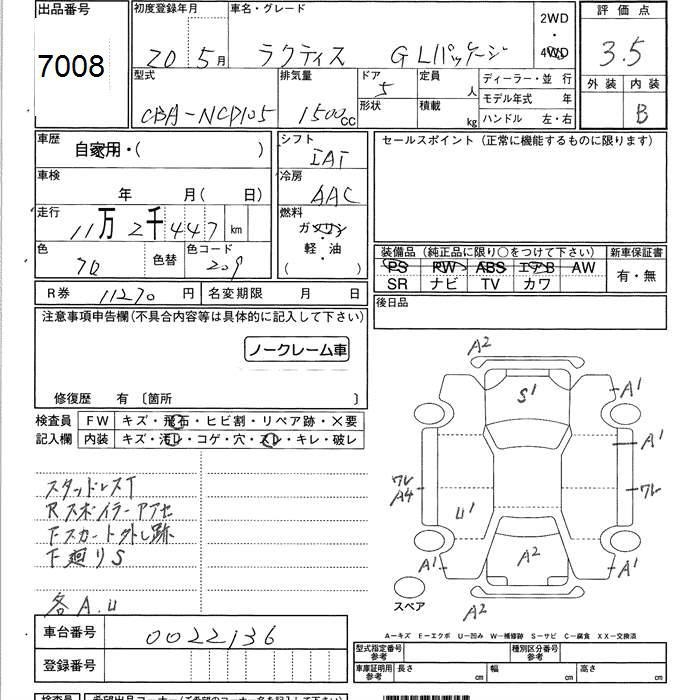 出品番号 初度登録年月 車名・グレード 2WD・4WD 評価点
7008 20 5月 ラクティス G Lパッケージ 3.5
型式 排気量 ドア 定員 人 ディーラー・並行 外装 内装
CBA-NCP105 1500cc 5 形状 積載 kg モデル年式 年 B
ハンドル 左・右
車歴 自家用・( ) シフト IAT セールスポイント(正常に機能するものに限ります)
車検 年 月( 日) 冷房 AAC
走行 11万2千447km 燃料 ガソリン 軽・油 ( )
色 70 色替 色コード 209 装備品(純正品に限り○をつけて下さい) 新車保証書
PS PW ABS エアB AW 有・無
SR ナビ TV カワ
R券 11270円 名変期限 月 日 後日品
注意事項申告欄(不具合内容等は具体的に記入して下さい)
ノークレーム車
修復歴 有 〔箇所 〕
検査員 FW キズ・飛石・ヒビ割・リペア跡・×要
記入欄 内装 キズ・汚レ・コゲ・穴・スレ・キレ・破レ
A2
S1
A1
A1
ワレ A4
ワレ
U1
A2
A1
A1
A2
スペア
スタッドレスT
Rスポイラーアアセ
Fスカート外し跡
下廻りS
各A.U
A-キズ E-エクボ U-凹み W-補修跡 S-サビ C-腐食 XX-交換済
車台番号 0022136
型式指定番号 参考 種別区分番号 参考
登録番号
車庫証明用 参考 長さ cm 幅 cm 高さ cm
検査員 希望出品コーナー(ご希望のコーナー名を記入して下さい)